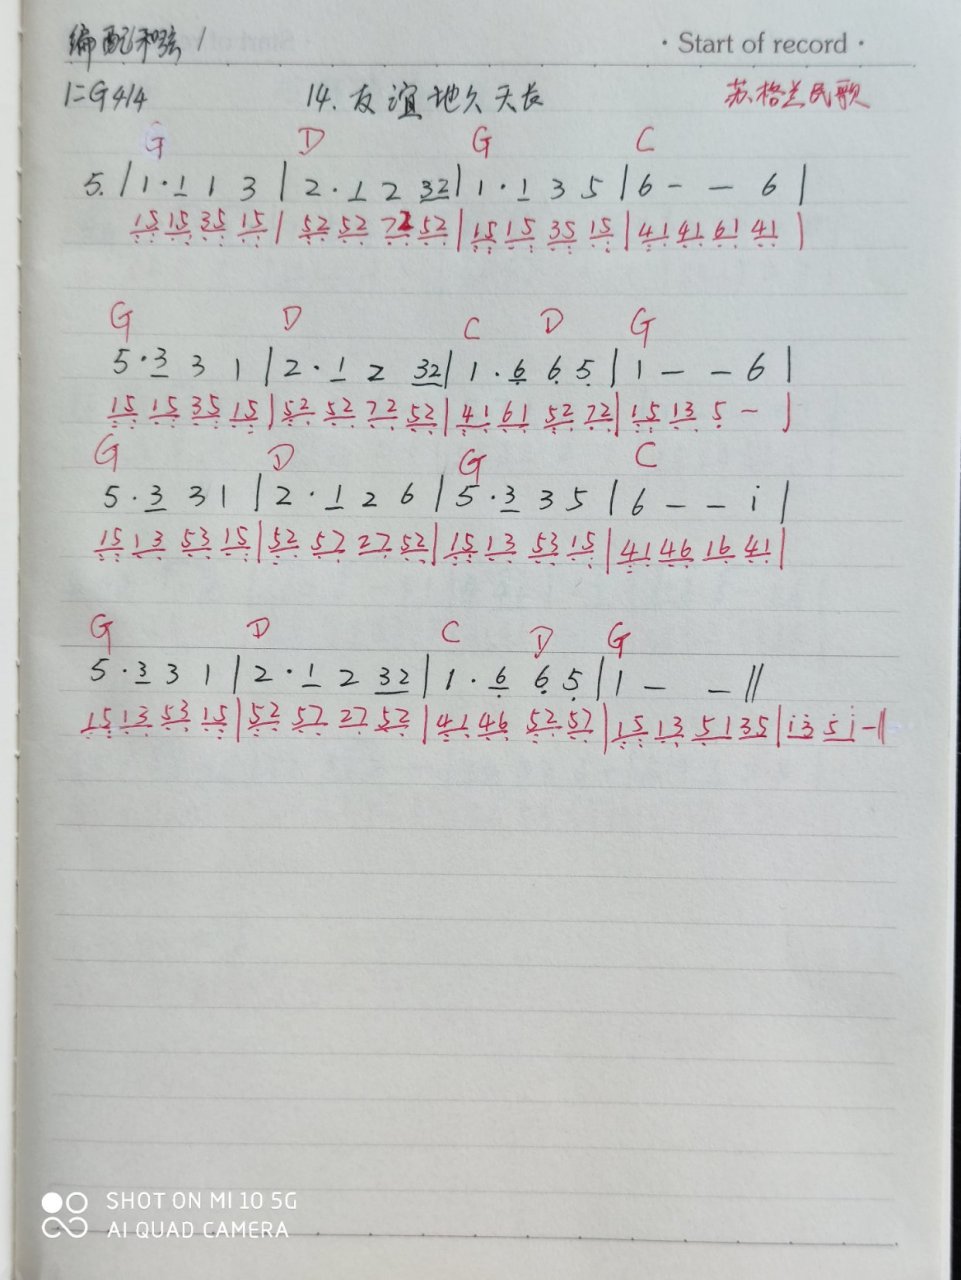 编配和弦1
· Start of record ·
1=G 4/4 14. 友谊地久天长 苏格兰民歌
G D G C
5. | 1 · 1 1 3 | 2 · 1 2 32 | 1 · 1 3 5 | 6 - - 6 |
15 15 35 15 | 52 52 72 52 | 15 15 35 15 | 41 41 61 41 |
G D C D G
5 · 3 3 1 | 2 · 1 2 32 | 1 · 6 6 5 | 1 - - 6 |
15 15 35 15 | 52 52 72 52 | 41 61 52 72 | 15 13 5 - |
G D G C
5 · 3 3 1 | 2 · 1 2 6 | 5 · 3 3 5 | 6 - - i |
15 13 53 15 | 52 57 27 52 | 15 13 53 15 | 41 46 16 41 |
G D C D G
5 · 3 3 1 | 2 · 1 2 32 | 1 · 6 6 5 | 1 - - ‖
15 13 53 15 | 52 57 27 52 | 41 46 52 57 | 15 13 51 35 | i3 5i - ‖
SHOT ON MI 10 5G
AI QUAD CAMERA